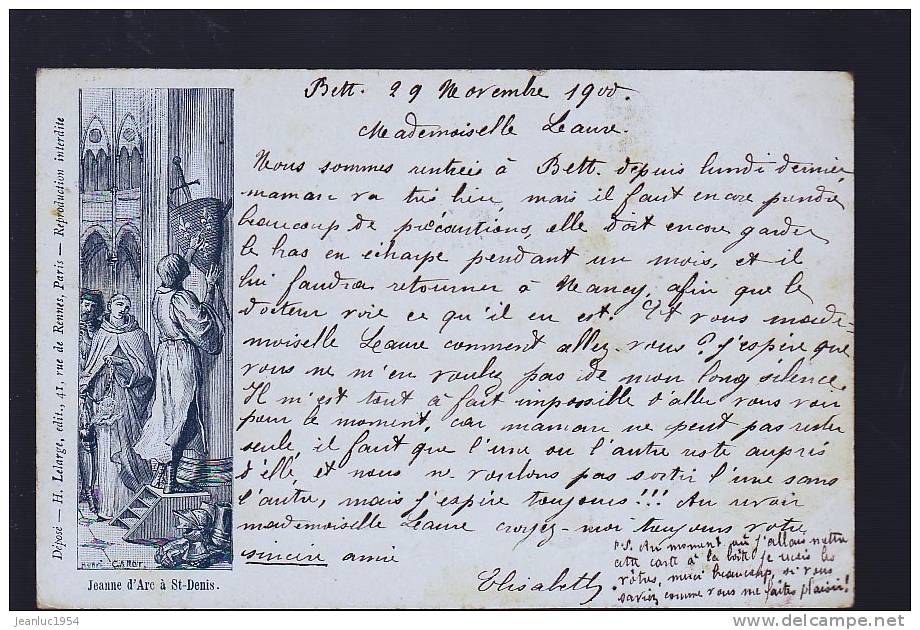 Bett. 29 Novembre 1900.
Mademoiselle Laure.
Nous sommes rentrées à Bett. depuis lundi dernier
maman va très bien mais il faut encore prendre
beaucoup de précautions, elle doit encore garder
le bras en écharpe pendant un mois, et il
lui faudra retourner à Nancy, afin que le
docteur voie ce qu'il en est. Et vous made-
moiselle Laure comment allez-vous? J'espère que
vous ne m'en voulez pas de mon long silence.
Il m'est tout à fait impossible d'aller vous voir
pour le moment, car maman ne peut pas rester
seule, il faut que l'une ou l'autre reste auprès
d'elle, et nous ne voulons pas sortir l'une sans
l'autre, mais j'espère toujours!!! Au revoir
mademoiselle Laure croyez-moi toujours votre
sincère amie
Elisabeth
P.S. Au moment où j'allais mettre
cette carte à la boîte je reçois les
vôtres, merci beaucoup, si vous
saviez comme vous me faites plaisir!
Déposé — H. Lelarge, edit., 41, rue de Rennes, Paris — Reproduction interdite
Jeanne d'Arc à St-Denis.
jeanluc1954
www.delcampe.net